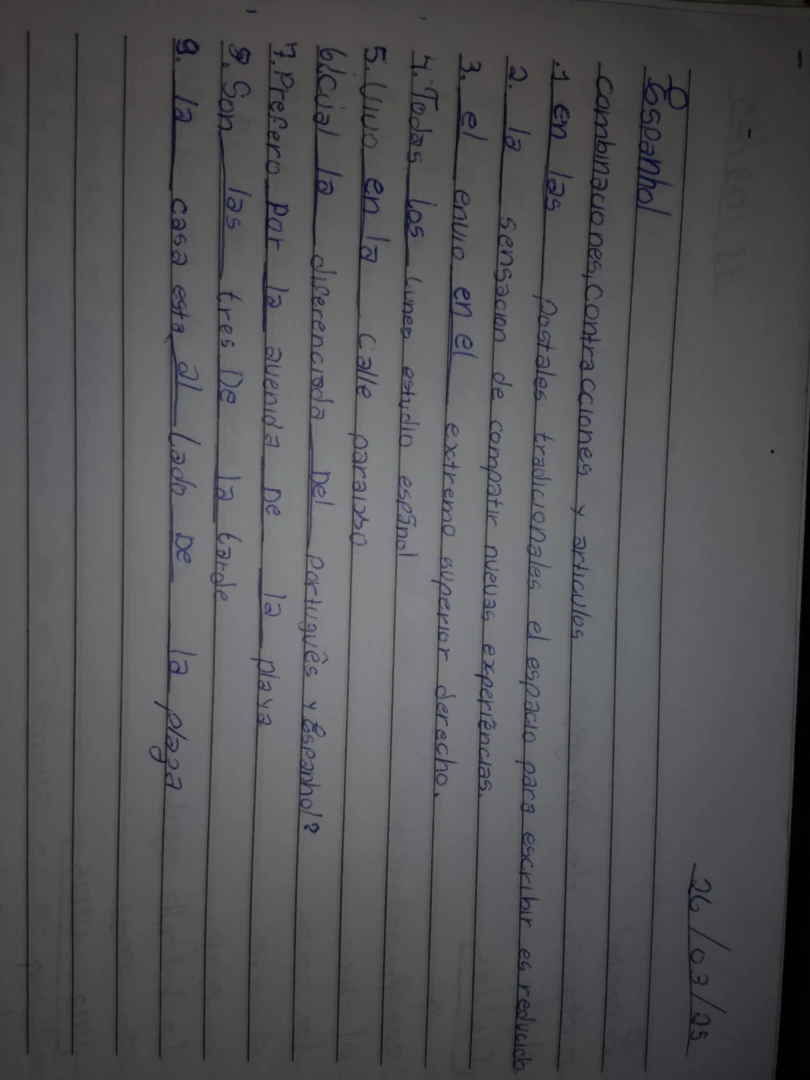 26/03/25
Espanhol
Combinaciones, contracciones y articulos
1 en las postales tradicionales el espacio para escribir es reducido.
2. la sensacion de compatir nuevas experiências.
3. el envio en el extremo superior derecho.
4. Todas los lunes estudio español
5. Vivo en la calle paraiso
6. Cúal la diferenciada Del português y Espanhol?
7. Prefero por la avenida De la playa
8. Son las tres De la tarde
9. la casa esta al lado De la plaza